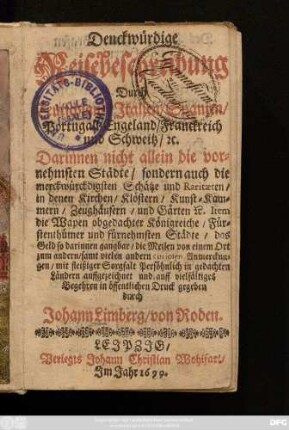 Denckwürdige
Reisebeschreibung
Durch
Teutschland / Italien / Spanien /
Portugall / Engeland / Franckreich
und Schweitz / ꝛc.
Darinnen nicht allein die vor-
nehmsten Städte / sondern auch die
merckwürdigsten Schätze und Raritäten /
in denen Kirchen / Klöstern / Kunst-Kam-
mern / Zeughäusern / und Gärten ꝛc. Item
die Wapen obgedachter Königreiche / Für-
stenthümer und fürnehmsten Städte / das
Geld so darinnen gangbar / die Meilen von einem Ort
zum andern / samt vielen andern curiosen Anmerckun-
gen / mit fleißiger Sorgfalt Persöhnlich in gedachten
Ländern auffgezeichnet und auff vielfältiges
Begehren in öffentlichen Druck gegeben
durch
Johann Limberg / von Roden.
LEIPZIG /
Verlegts Johann Christian Wohlfart /
Im Jahr 1690.